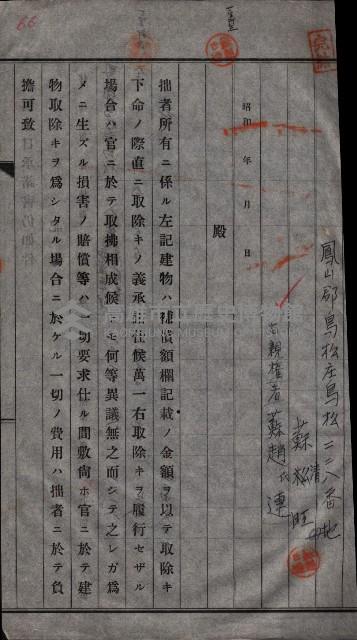 鳳山郡鳥松庄鳥松二二八番地
蘇清旺
右親権者蘇趙氏連
昭和　年　月　日
殿
拙者所有ニ係ル左記建物ハ補償額欄記載ノ金額ヲ以テ取除キ
下命ノ際直ニ取除キノ義承諾仕候萬一右取除キヲ履行セザル
場合ハ官ニ於テ取拂相成候トモ何等異議無之而シテ之レガ爲
メニ生ズル損害ノ賠償等ハ一切要求仕ル間敷尚ホ官ニ於テ建
物取除キヲ爲シタル場合ニ於ケル一切ノ費用ハ拙者ニ於テ負
擔可致
66
高雄市立歷史博物館